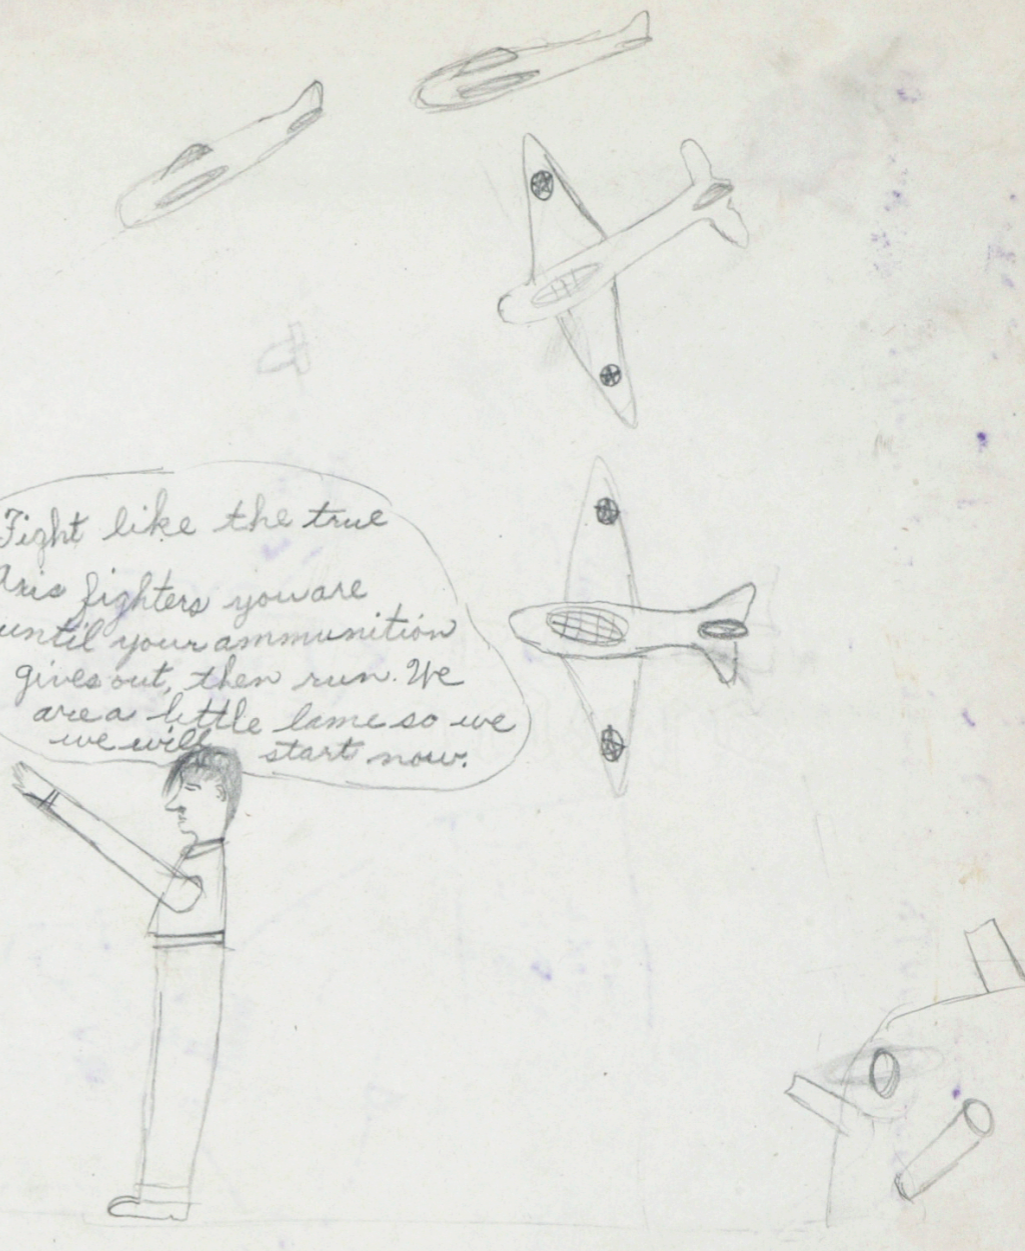 Fight like the true
Axis fighters you are
until your ammunition
gives out, then run. We
are a little lame so we
we will start now.